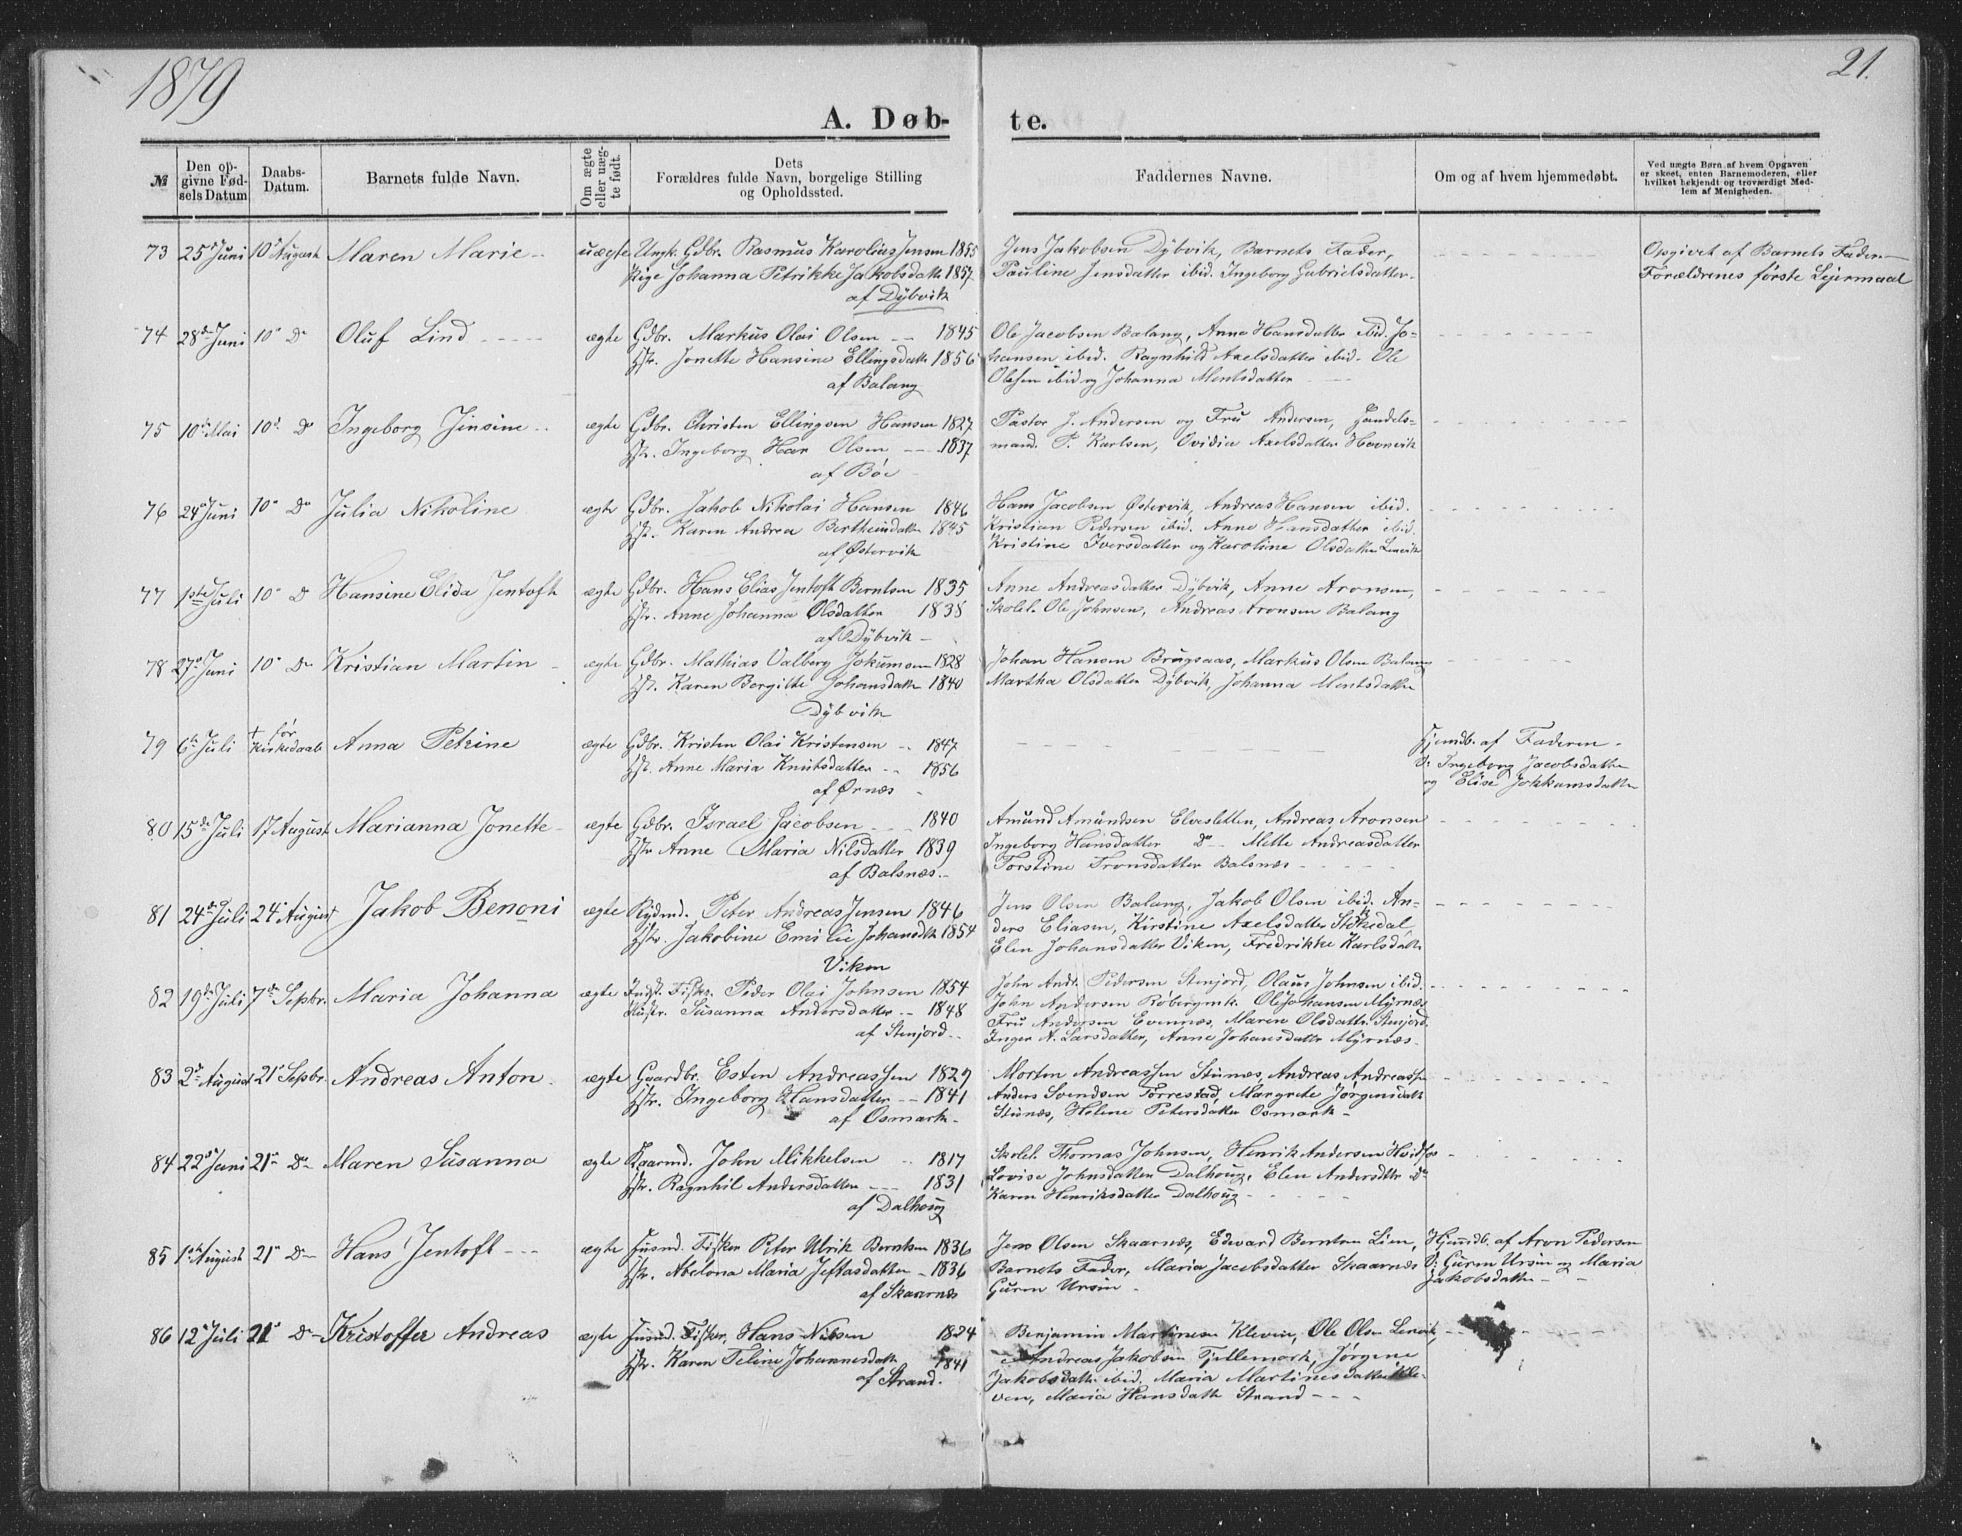 1879
21.
A. Døb-
te.
№
Den op-
givne Fød-
sels Datum
Daabs-
Datum.
Barnets fulde Navn.
Om ægte
eller uæg-
te født.
Dets
Forældres fulde Navn, borgelige Stilling
og Opholdssted.
Faddernes Navne.
Om og af hvem hjemmedøbt.
Ved uægte Børn af hvem Opgaven
er skeet, enten Barnemoderen, eller
hvilket bekjendt og troværdigt Med-
lem af Menigheden.
73 25 Juni 10 August Maren Marie uægte Ungk. Gdbr. Rasmus Karolius Jensen 1855
Pige Johanna Petrikke Jakobsdatte 1857
af Dÿbvik
Jens Jakobsen Dÿbvik, Barnets Fader,
Pauline Jensdatter ibid. Ingeborg Gabrielsdatter
Opgivet af Barnets Fader
Forældrenes første Lejermaal
74 28de Juni 10 Do Oluf Lind ægte Gdbr. Markus Olai Olsen 1845
Hstr. Jonette Hansine Ellingsdatt 1856
af Balang
Ole Jacobsen Balang, Anne Hansdatter ibid. Jo-
hansen ibid. Ragnhild Axelsdatter ibid. Ole
Olesen ibid og Johanna Mentsdatter
75 10de Mai 10 Do Ingeborg Jensine ægte Gdbr. Christen Ellingsen Hansen 1827
Hstr. Ingeborg Olsen 1837
af Böe
Pastor J. Andersen og Fru Andersen, Handels=
mand P. Karlsen, Ovidia Axelsdatter
76 24 Juni 10 Do Julia Nikoline ægte Gdbr. Jakob Nikolai Hansen 1846
Hstr. Karen Andrea 1845
af Østervik
Hans Jacobsen Østervik, Andreas Hansen ibid.
Kristian Pedersen ibid. Anne Hansdatter ibid.
Kristine Iversdatter og Karoline Olsdatter Lenvik
77 1ste Juli 10 D Hansine Elida Jentoft ægte Gdbr. Hans Elias Jentoft Berntsen 1835
Hstr. Anne Johanna Olsdatter 1838
af Dÿbvik
Anne Andreasdatter Dÿbvik, Anne Aronsen,
Skolel. Ole Johnsen, Andreas Aronsen Balang
78 27 Juni 10 Do Kristian Martin ægte Gdbr. Mathias Valberg Jokumsen 1828
Hstr. Karen Bergitte Johansdatt 1840
Dÿbvik
Johan Hansen Brugsaas, Markus Olsen Balang
Martha Olsdatter Dÿbvik, Johanna Mentsdatter
79 6te Juli + før
Kirkedaab Anna Petrine ægte Gdbr. Kristen Olai Kristensen 1847
Hstr. Anne Maria Knutsdatter 1856
af Ørnæs
Hjemdb. af Faderen
V: Ingeborg Jacobsdatter
og Elise Jokkumsdatter
80 15de Juli 17 August Marianna Jonette ægte Gdbr. Israel Jacobsen 1840
Hstr Anne Maria Nilsdatter 1839
af Balsnæs
Amund Amundsen Elvesletten, Andreas Aronsen
Ingeborg Hansdatter Do Mette Andreasdatter
Torstine Tronsdatter Balsnæs
81 24de Juli 24 August Jakob Benoni ægte Rydmd. Peter Andreas Jensen 1846
Hstr. Jakobine Emilie Johansdtr 1854
Viken
Jens Olsen Balang, Jakob Olsen ibid. An-
ders Eliasen, Kirstine Axelsdatter
Elen Johansdatter Viken, Fredrikke Karlsdatter
82 19de Juli 7de Septbr. Maria Johanna ægte Indst. Fisker. Peder Olai Johnsen 1854
Hustr. Susanna Andersdatter 1848
af Stenjord
John Andr. Pedersen Stenjord, Olaus Johnsen ibid.
John Andersen Ole Johansen Mÿrnæs
Fru Andersen Evennæs, Maren Olsdattr. Stenjord
Inger A. Larsdatter, Anne Johansdattr Mÿrnæs
83 2den August 21 Septbr. Andreas Anton ægte Gaardbr. Esten Andreassen 1829
Hstr. Ingeborg Hansdatter 1841
af Osmark
Morten Andreassen Stunæs, Andreas Andreasse
Anders Svendsen Torrestad, Margrete Jørgensdatt
Stunæs, Heline Petersdatter Osmark
84 22 Juni 21 Do Maren Susanna ægte John Mikkelsen 1817
Hstr. Ragnhil Andersdatter 1831
af Dalhoug
Skolel. Thomas Johnsen, Henrik Andersen
Lovise Johnsdatter Dalhoug, Elen Andersdttr Do
Karen Henriksdatter Dalhoug
85 1ste August 21 Do Hans Jentoft ægte Husmd. Fisker Peter Ulrik Berntsen 1836
Hstr. Abelona Maria Jeftasdatter 1836
af Skaarnæs
Jens Olsen Skaarnæs, Edevard Berntsen Lien,
Barnets Fader, Maria Jacobsdatter Skaarnæs
Guren Ursin
Hjemdb. af Aron Pedersen
V: Guren Ursin og Maria
Jakobsdatter
86 12 Juli 21 Do Kristoffer Andreas ægte Husmd. Fisker, Hans Nilsen 1824
Hstr. Karen Teline Johannesdatt 1841
af Strand.
Benjamin Martinesen Kleven, Ole Olsen Lenvik,
Andreas Jakobsen Fjellemark, Jørgine
Jakobsdatt. ibid. Maria Martinesdatter Kle-
ven, Maria Hansdatt Strand